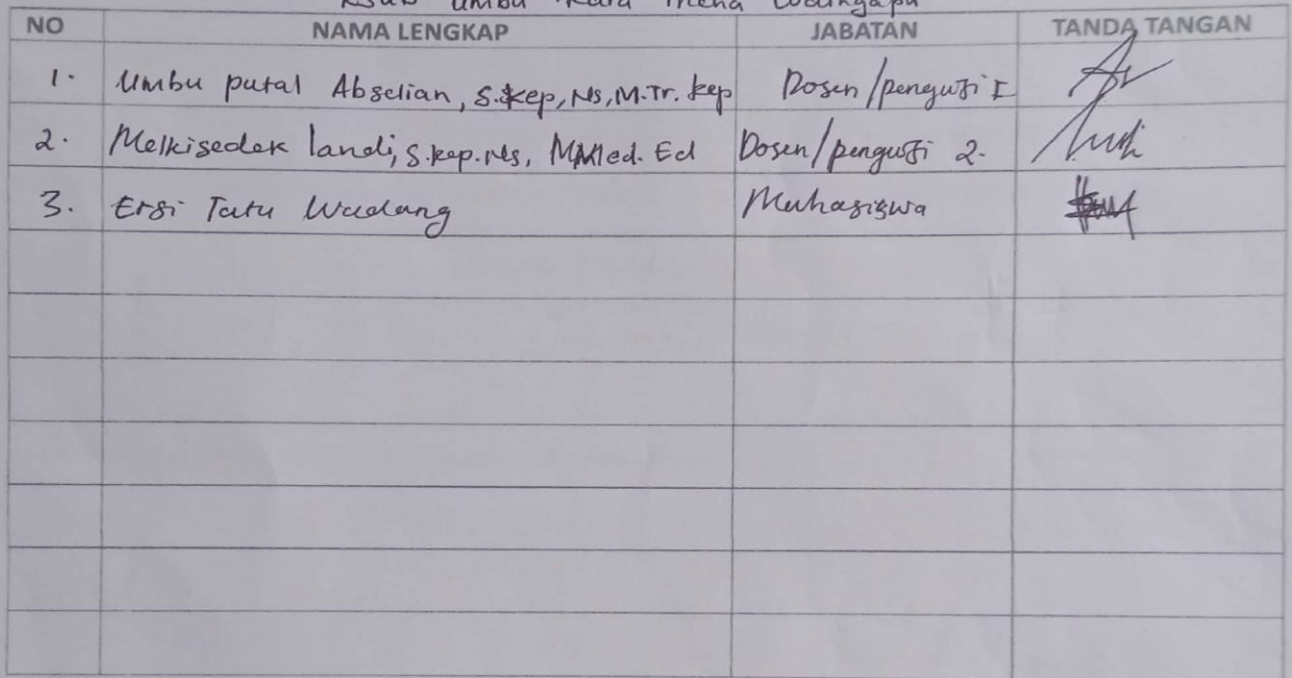 RSUD Umbu Rara Meha Waingapu
NO NAMA LENGKAP JABATAN TANDA TANGAN
1. Umbu putal Abselian, S.kep, Ns, M.Tr. kep Dosen/penguji I
2. Melkisedek landi, S.kep.Ns, MMed. Ed Dosen/penguji 2.
3. Ersi Tatu Wadang Mahasiswa